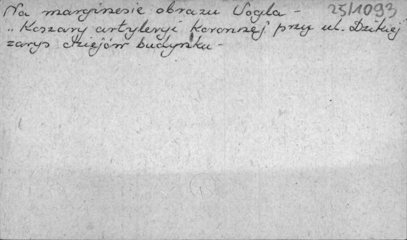 Na marginesie obrazu Vogla - 25/1093
„Koszary artylerji koronnej przy ul. Dzikiej
zarys dziejów budynku -